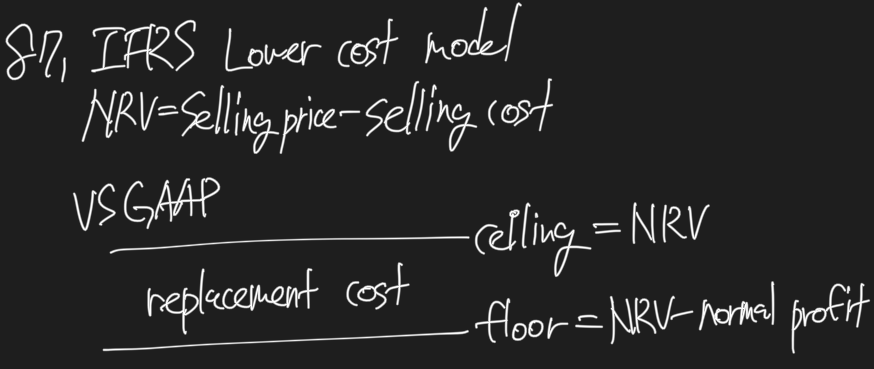 87, IFRS Lower cost model
NRV=Selling price-selling cost
VS GAAP
ceiling = NRV
replacement cost
floor = NRV-normal profit